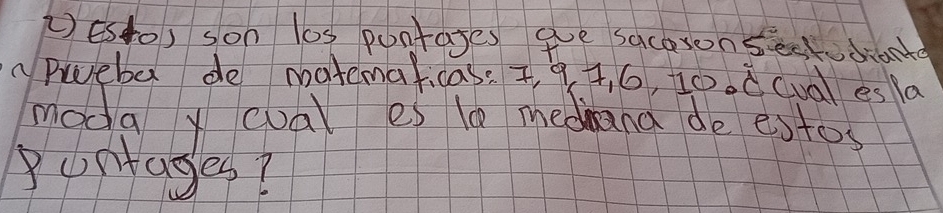 2) Estos son los puntages que sacaron 5 estudiante
a prueba de matematicas: 7, 9, 7, 6, 10. ¿cual es la
moda y cual es la mediana de estos
puntages?